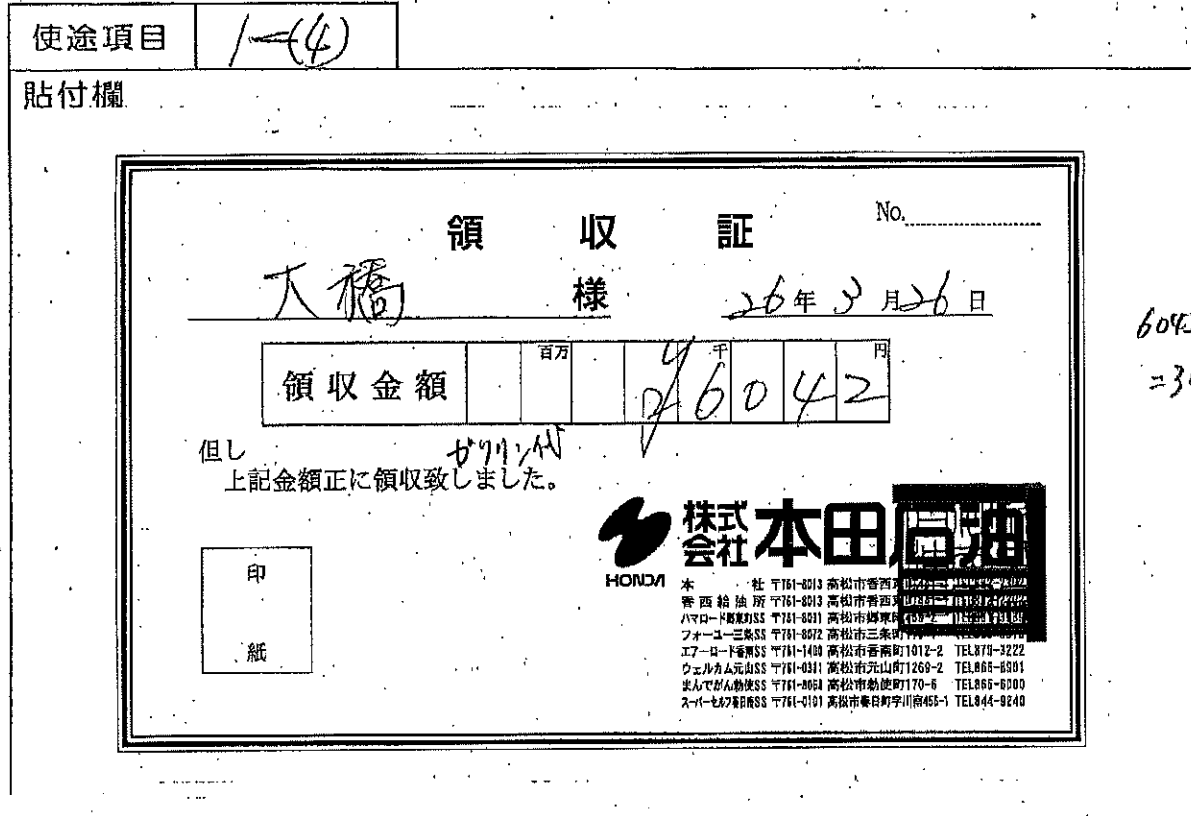 使途項目 1-(4)
貼付欄
領収証 No.
大橋 様 26年3月26日
領収金額 百万 千 円 ¥6042
但し ガソリン代
上記金額正に領収致しました。
印紙
HONDA 株式会社 本田石油
本社 〒761-8013 高松市香西
香西給油所 〒761-8013 高松市香西
〒761-8031 高松市郷東
フォーユー三条SS 〒761-8072 高松市三条町
エアーロード香南SS 〒761-1400 高松市香南町1012-2 TEL879-3222
ウェルカム元山SS 〒761-0311 高松市元山町1269-2 TEL866-6901
まんでがん勅使SS 高松市勅使町170-6 TEL866-6000
〒761-0101 高松市春日町字川南456-1 TEL844-9240